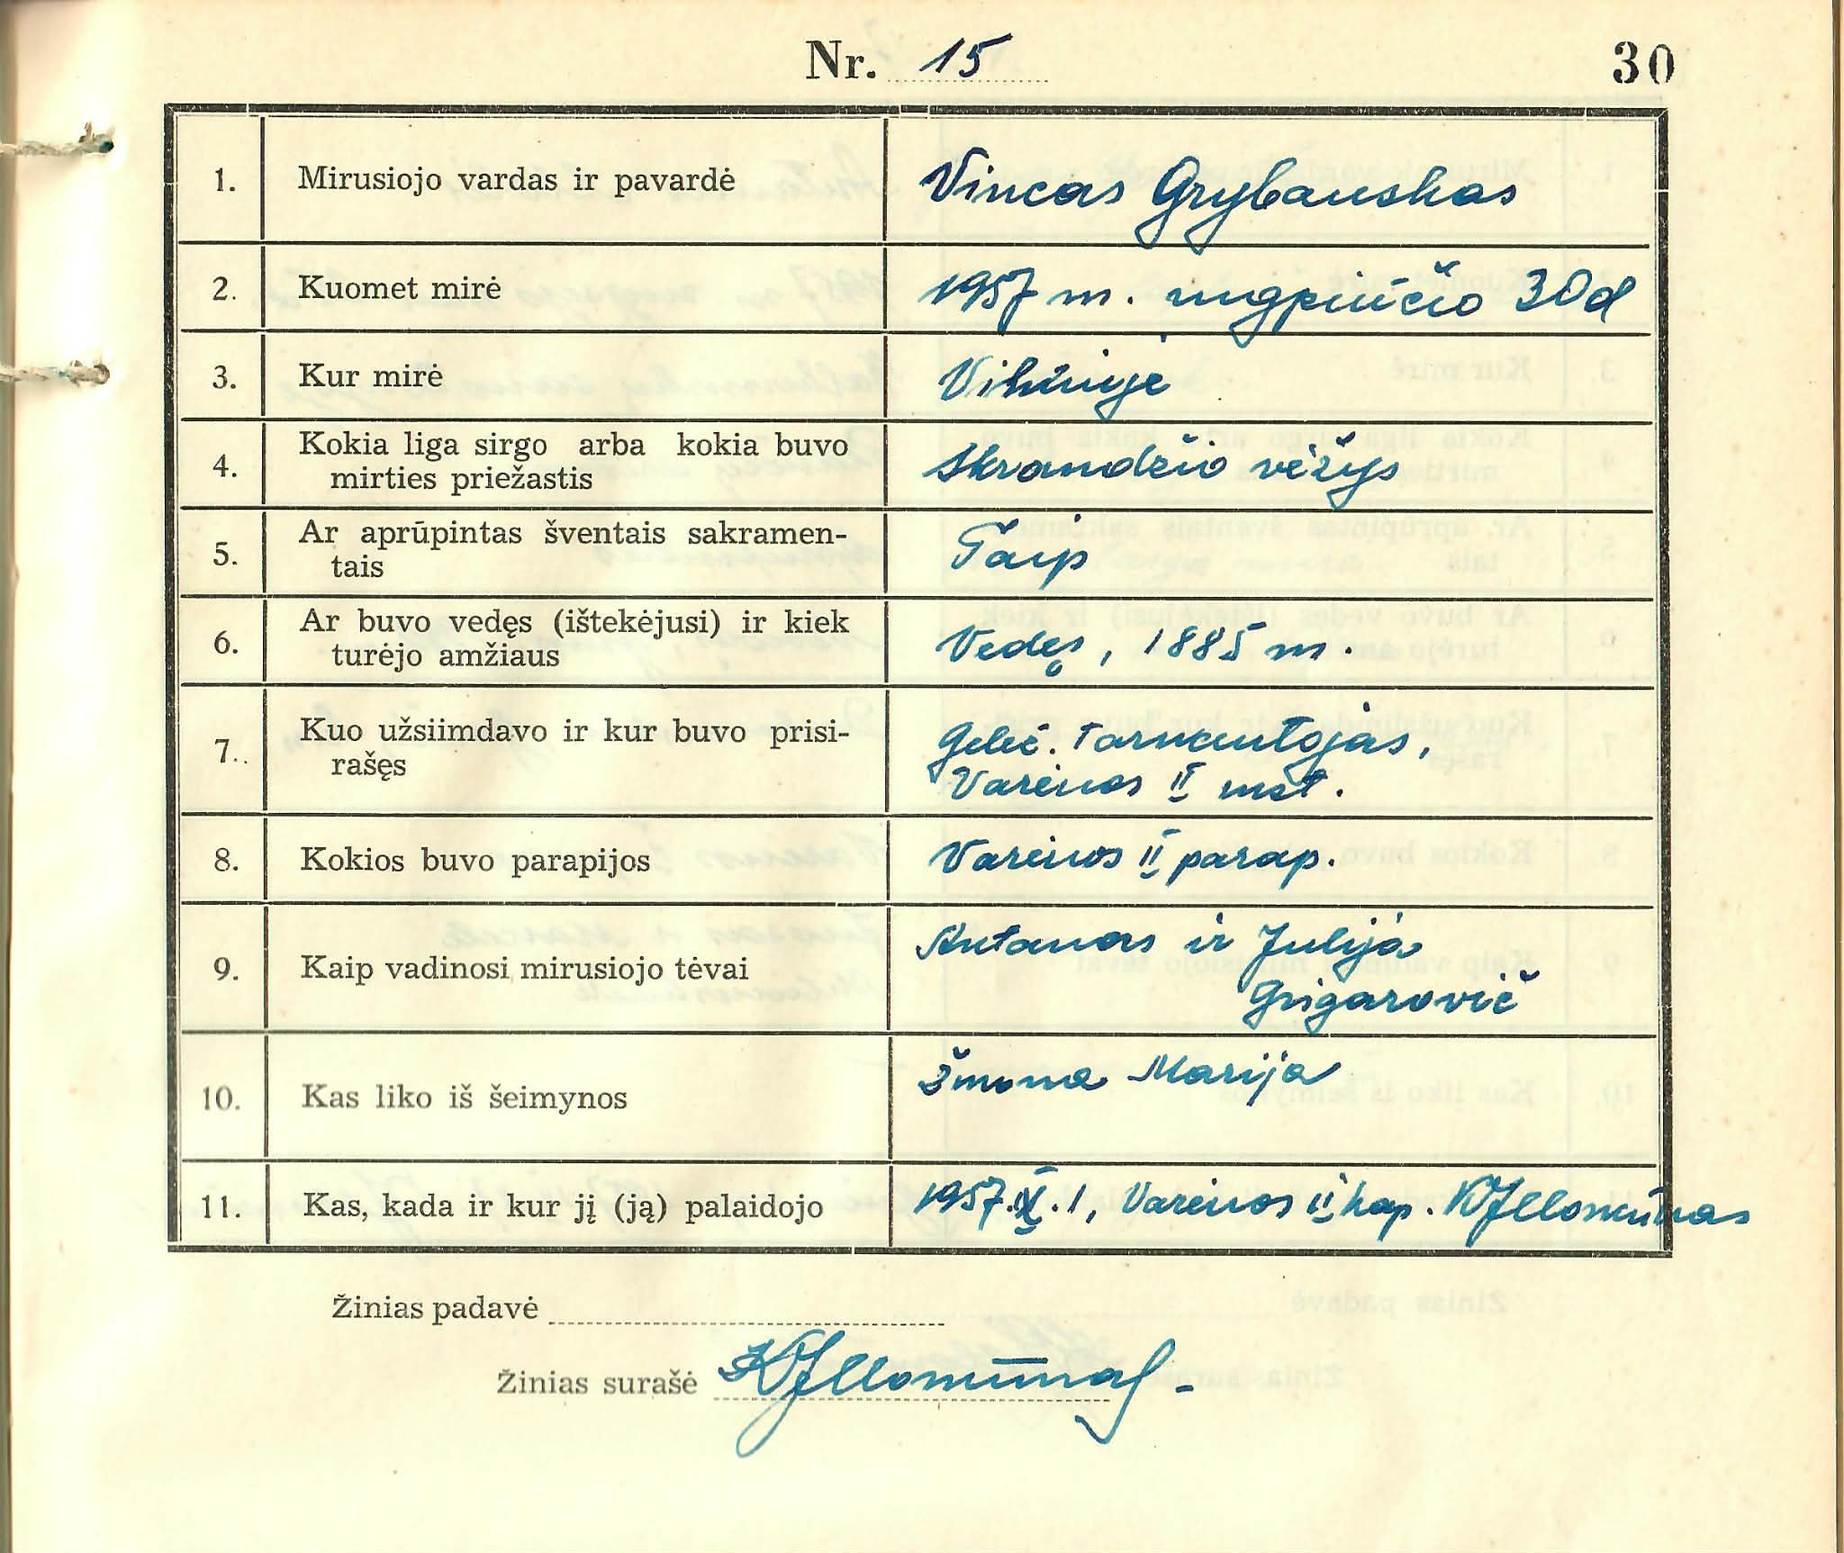 Nr. 15
30
1. Mirusiojo vardas ir pavardė Vincas Grybauskas
2. Kuomet mirė 1957 m. rugpiūčio 30 d
3. Kur mirė Vilniuje
4. Kokia liga sirgo arba kokia buvo
mirties priežastis Skrandžio vėžys
5. Ar aprūpintas šventais sakramen-
tais Taip
6. Ar buvo vedęs (ištekėjusi) ir kiek
turėjo amžiaus Vedęs, 1885 m.
7. Kuo užsiimdavo ir kur buvo prisi-
rašęs Gelež. tarnautojas,
Varėnos II mst.
8. Kokios buvo parapijos Varėnos II parap.
9. Kaip vadinosi mirusiojo tėvai Antanas ir Julija
Grigarovič
10. Kas liko iš šeimynos Žmona Marija
11. Kas, kada ir kur jį (ją) palaidojo 1957.IX.1, Varėnos II kap.
Žinias padavė
Žinias surašė